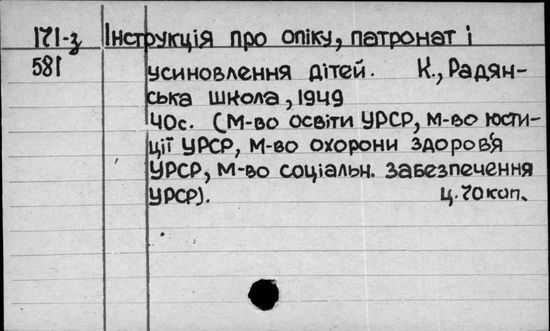 171-з Інструкція про опіку, патронат і
581 усиновлення дітей. К., Радян-
ська школа, 1949
40с. (М-во освіти УРСР, М-во юсти-
ції УРСР, М-во охорони здоров'я
УРСР, М-во соціальн. забезпечення
УРСР). ц. 70коп.